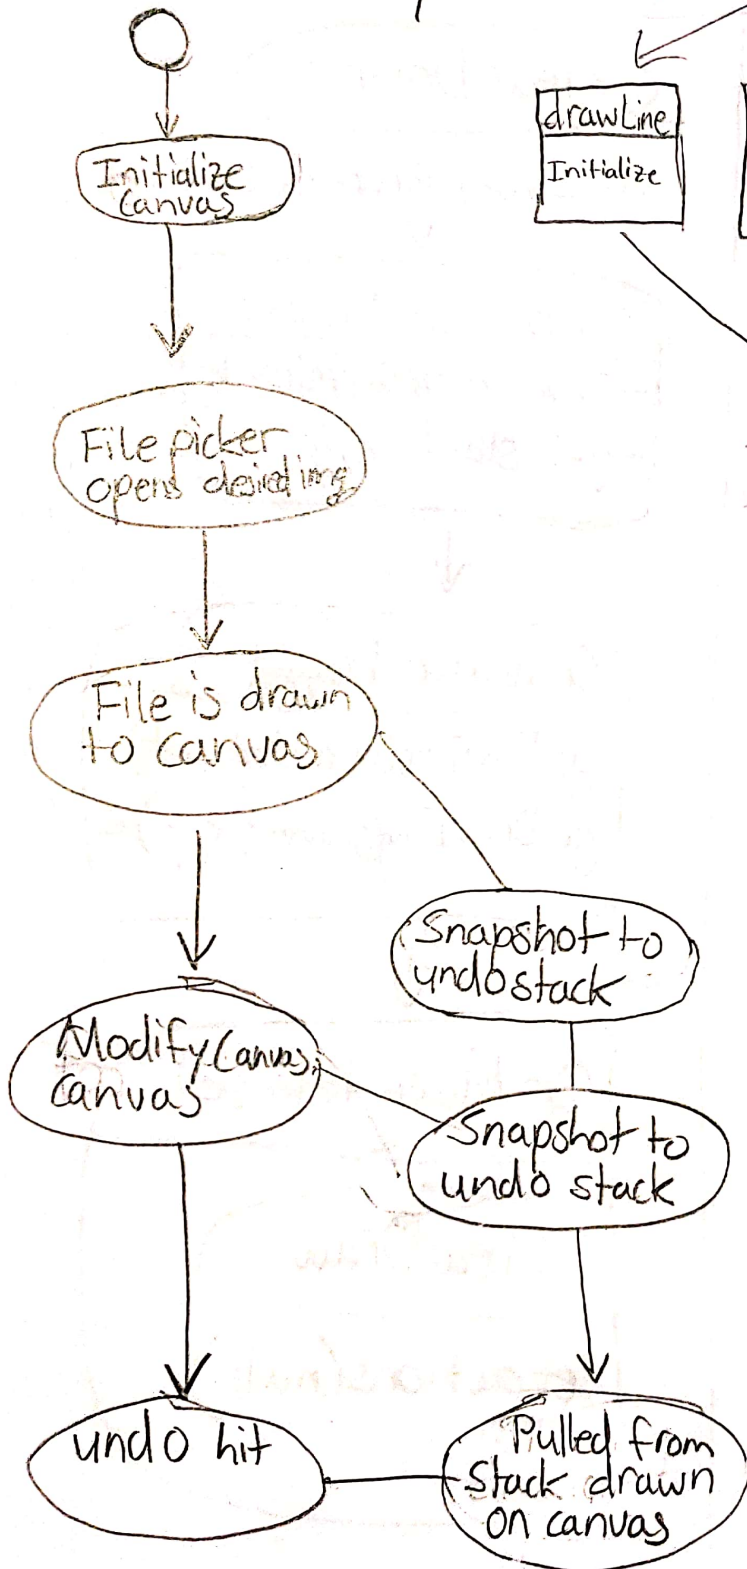 drawLine
Initialize
Initialize
Canvas
File picker
opens desied img
File is drawn
to canvas
Snapshot to
undo stack
Modify Canvas
canvas
Snapshot to
undo stack
undo hit
Pulled from
Stack drawn
on canvas